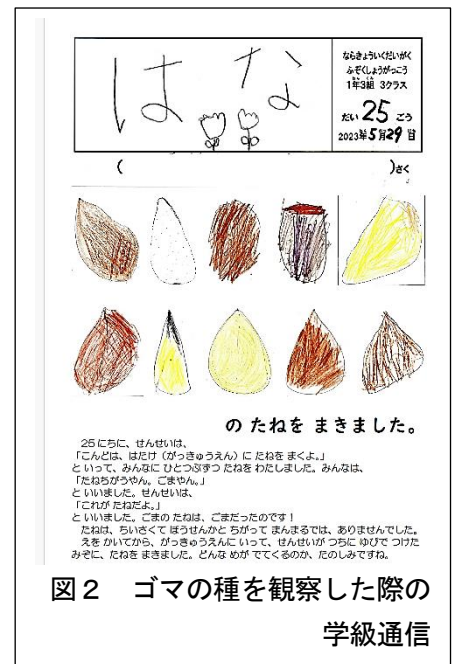 はな
ならきょういくだいがく
ふぞくしょうがっこう
1年3組 3クラス
だい 25 ごう
2023年5月29日
(　　　　)さく
の たねを まきました。
25にちに、せんせいは、
「こんどは、はたけ（がっきゅうえん）に たねを まくよ。」
といって、みんなに ひとつぶずつ たねを わたしました。みんなは、
「たねちがうやん。ごまやん。」
といいました。せんせいは、
「これが たねだよ。」
といいました。ごまの たねは、ごまだったのです！
たねは、ちいさくて ほうせんかと ちがって まんまるでは、ありませんでした。
えを かいてから、がっきゅうえんに いって、せんせいが つちに ゆびで つけた
みぞに、たねを まきました。どんな めが でてくるのか、たのしみですね。
図２　ゴマの種を観察した際の
学級通信